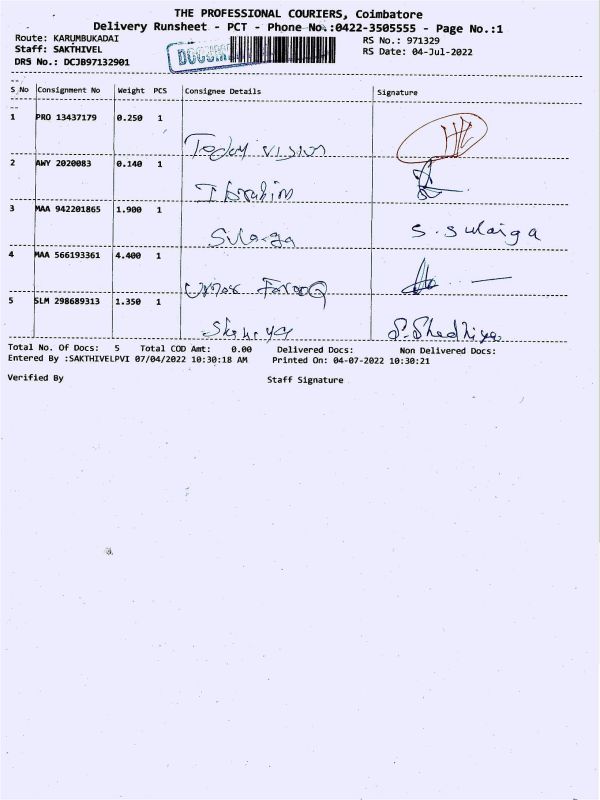 THE PROFESSIONAL COURIERS, Coimbatore
Delivery Runsheet - PCT - Phone No.:0422-3505555 - Page No.:1
Route: KARUMBUKADAI
RS No.: 971329
Staff: SAKTHIVEL
RS Date: 04-Jul-2022
DRS No.: DCJB97132901
S_No Consignment No Weight PCS Consignee Details Signature
1 PRO 13437179 0.250 1
Today vision
2 AWY 2020083 0.140 1
Ibrahim
3 MAA 942201865 1.900 1
Sulaiga S. Sulaiga
4 MAA 566193361 4.400 1
Umar Farooq
5 SLM 298689313 1.350 1
Total No. Of Docs: 5 Total COD Amt: 0.00 Delivered Docs: Non Delivered Docs:
Entered By :SAKTHIVELPVI 07/04/2022 10:30:18 AM Printed On: 04-07-2022 10:30:21
Verified By Staff Signature